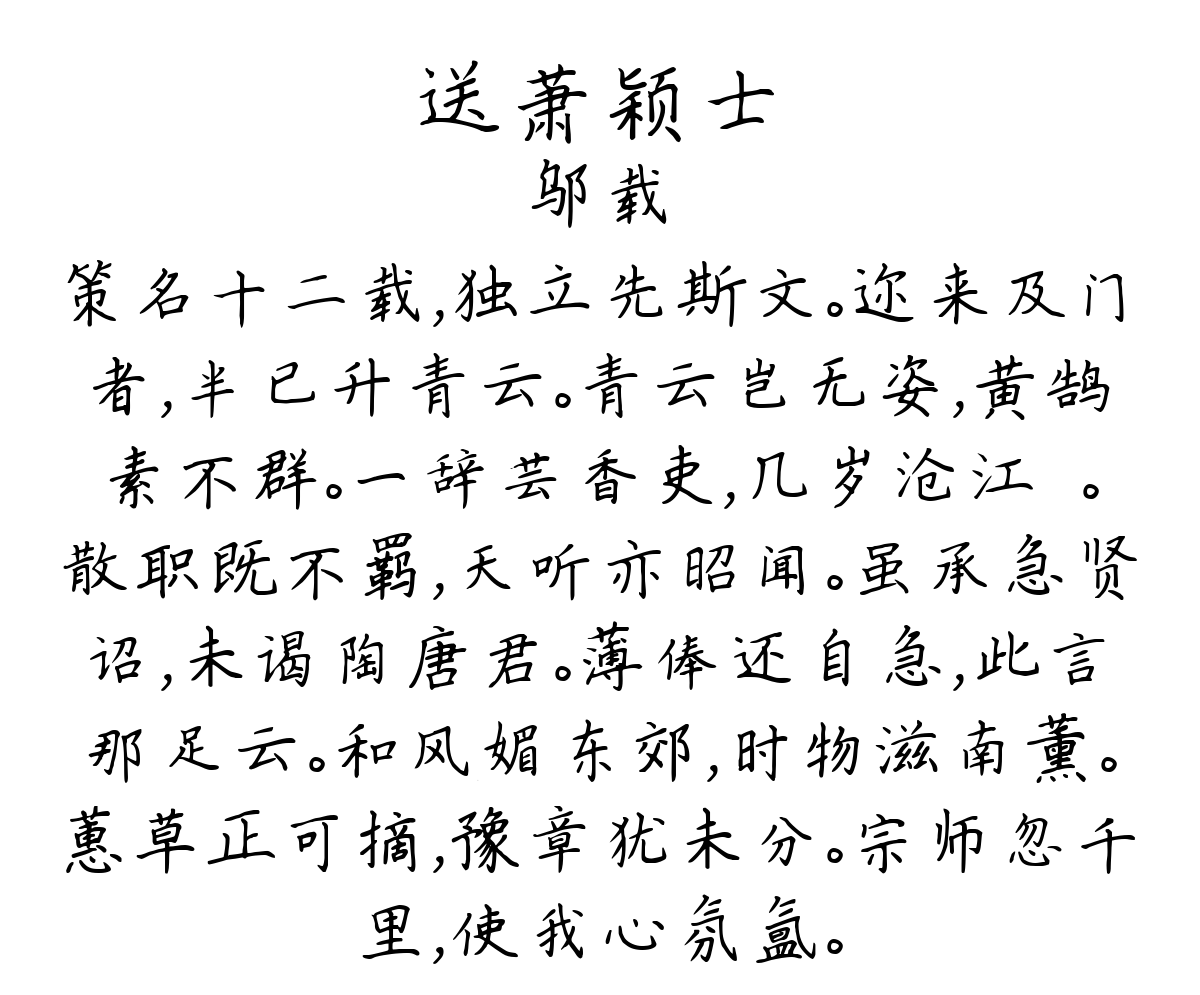 送萧颖士
邬载
策名十二载,独立先斯文。迩来及门
者,半已升青云。青云岂无姿,黄鹄
素不群。一辞芸香吏,几岁沧江 。
散职既不羁,天听亦昭闻。虽承急贤
诏,未谒陶唐君。薄俸还自急,此言
那足云。和风媚东郊,时物滋南薰。
蕙草正可摘,豫章犹未分。宗师忽千
里,使我心氛氲。